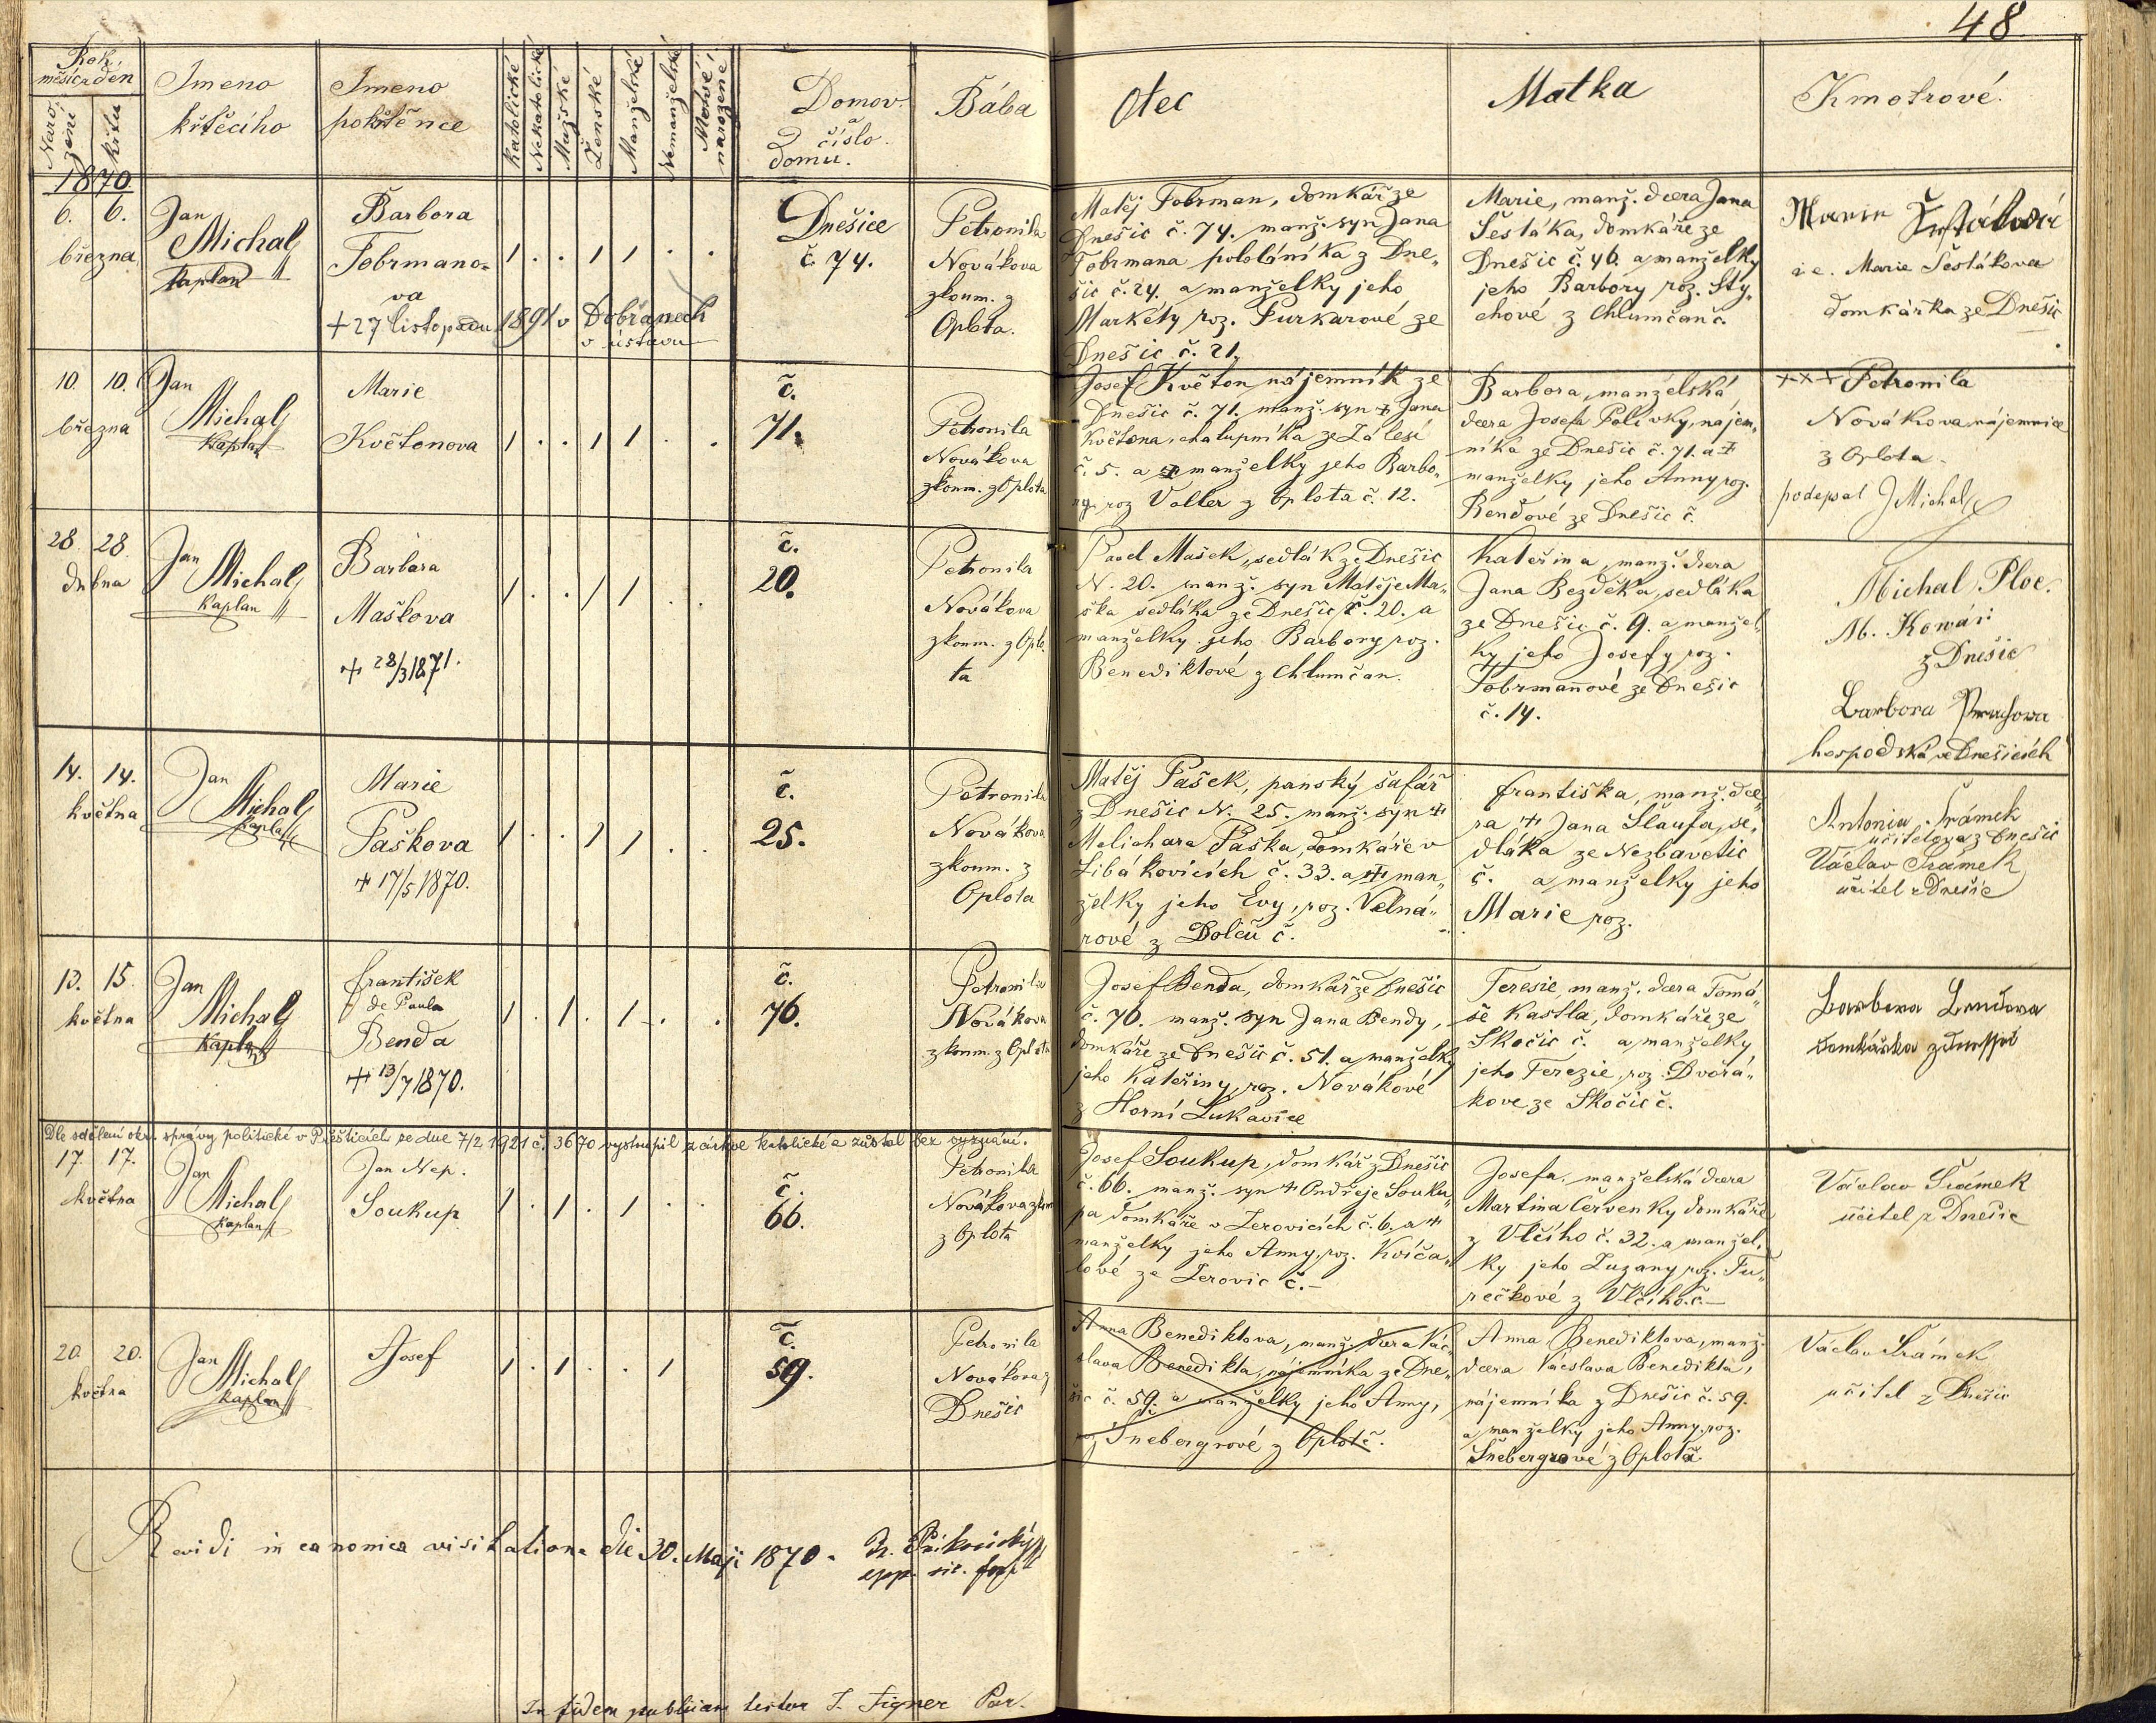 48.
Rok, měsíc a den
Narození
křtu
Jmeno křtěcího
Jmeno pokřtěnce
Katolické
Nekatolické
Mužské
Ženské
Manželské
Nemanželské
Mrtvé narozené
Domov. a číslo domu.
Bába
Otec
Matka
Kmotrové.
1870.
6. 6.
března
Jan
Michal
Kaplan
Barbora
Fobrmano-
va
+ 27 listopadu 1891 v Dobřanech
v ústavu
Dnešice
č. 74.
Petronila
Novákova
zkoum. z
Oplota.
Matěj Fobrman, domkář ze
Dnešic č. 74. manž. syn Jana
Fobrmana pololáníka z Dne-
šic č. 24. a manželky jeho
Markéty roz. Purkarové ze
Dnešic č. 21.
Marie, manž. dcera Jana
Šestáka, domkáře ze
Dnešic č. 46. a manželky
jeho Barbory roz. Sty-
chové z Chlumčan č.
Marie Šestáková
i. e. Marie Šestákova
domkářka ze Dnešic
10. 10.
března
Jan
Michal
Kaplan
Marie
Květonova
č.
71.
Petronila
Novákova
zkoum. z Oplota
Josef Květon nájemník ze
Dnešic č. 71. manž. syn + Jana
Květona, chalupníka ze Zálesí
č. 5. a + manželky jeho Barbo-
ry, roz Valter z Oplota č. 12.
Barbora, manželská
dcera Josefa Polívky, nájem-
níka ze Dnešic č. 71. a +
manželky jeho Anny roz.
Bendové ze Dnešic č.
+++ Petronila
Novákova nájemnice
z Oplota
podepsal J Michal
28. 28.
dubna
Jan
Michal
Kaplan
Barbara
Maškova
+ 28/3 1871.
č.
20.
Petronila
Novákova
zkoum. z Oplo-
ta
Pavel Mašek, sedlák ze Dnešic
N. 20. manž. syn Matěje Ma-
ška sedláka ze Dnešic č. 20. a
manželky jeho Barbory roz.
Benediktové z Chlumčan.
Kateřina, manž. dcera
Jana Bezděka, sedláka
ze Dnešic č. 9. a manžel-
ky jeho Josefy roz.
Fobrmannové ze Dnešic
č. 14.
Michal Ploc.
M. Kowář
z Dnešic
Barbora
hospodská v Dnešicích
14. 14.
května
Jan
Michal
Kaplan
Marie
Paškova
+ 17/5 1870.
č.
25.
Petronila
Novákova
zkoum. z
Oplota
Matěj Pašek, panský šafář
z Dnešic N. 25. manž. syn +
Melichara Paška, domkáře v
Libákovicích č. 33. a + man-
želky jeho Evy, roz. Velná-
rové z Dolců č.
Františka, manž. dce-
ra + Jana Šlaufa, se-
dláka ze Nezbavětic
č. a manželky jeho
Marie roz.
Antonia Šrámek
učitelova z Dnešic
Václav Šrámek
učitel z Dnešic
13. 15.
května
Jan
Michal
Kaplan
František
de Paula
Benda
+ 13/7 1870.
č.
76.
Petronila
Novákova
zkoum. z Oplota
Josef Benda, domkář ze Dnešic
č. 76. manž. syn Jana Bendy,
domkáře ze Dnešic č. 51. a manželky
jeho Kateřiny, roz. Novákové
z Horní Lukavice
Teresie, manž. dcera Tomá-
še Kastla, domkáře ze
Skočic č. a manželky
jeho Terezie, roz. Dvořá-
kove ze Skočic č.
Barbora Bendova
domkářka
Dle sdělení okr. správy politické v Přešticích ze dne 7/2 1921 č. 3670 vystoupil z církve katolické a zůstal bez vyznání.
17. 17.
května
Jan
Michal
Kaplan
Jan Nep.
Soukup
č.
66.
Petronila
Novákova zkoum
z Oplota
Josef Soukup, domkář z Dnešic
č. 66. manž. syn + Ondřeje Souku-
pa domkáře v Zerovicích č. 6. a +
manželky jeho Anny, roz. Kvíča-
lové ze Zerovic č. —
Josefa, manželská dcera
Martina Červenky domkáře
z Vlčího č. 32. a manžel-
ky jeho Zuzany roz. Tu-
rečkové z Vlčího č. —
Václav Šrámek
učitel z Dnešic
20. 20.
května
Jan
Michal
Kaplan
Josef
č.
59.
Petronila
Novákova z
Dnešic
Anna Benediktova, manž. dcera Vác-
slava Benedikta, nájemníka ze Dne-
šic č. 59. a manželky jeho Anny,
roz Šnebergrové z Oplot č.
Anna Benediktova, manž.
dcera Václava Benedikta,
nájemníka z Dnešic č. 59.
a manželky jeho Anny roz.
Šnebergrové z Oplota
Václav Šrámek
učitel z Dnešic
Revidi in canonica visitatione die 30. Maji 1870.
In fidem publicam testor J. Figner Par.